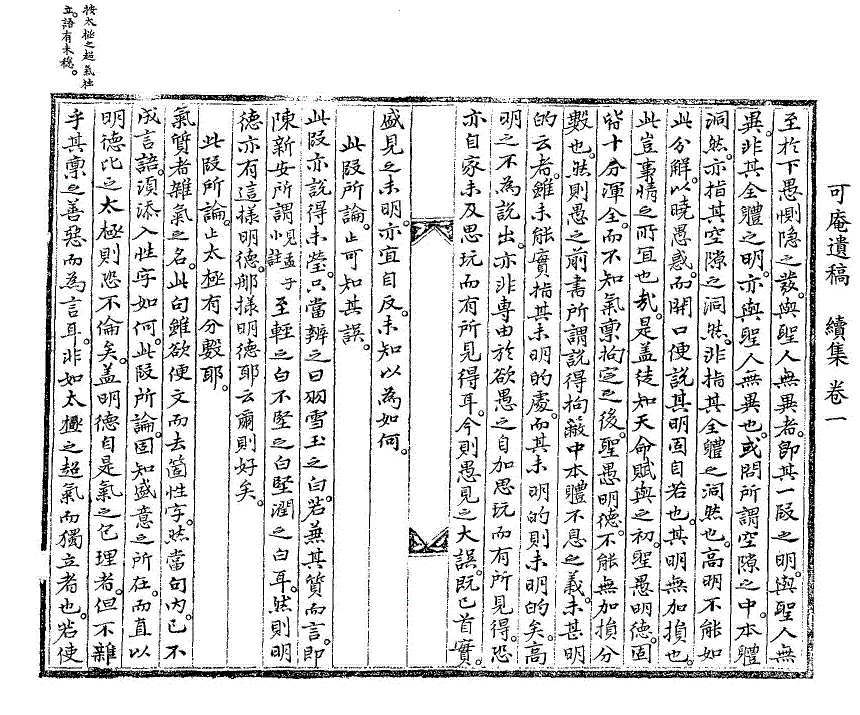 可庵遺稿　續集卷一
至於下愚惻隐之發。與聖人無異者。卽其一段之明。與聖人無
異。非其全體之明。亦與聖人無異也。或問所謂空隙之中。本體
洞然。亦指其空隙之洞然。非指其全體之洞然也。高明不能如
此分解。以曉愚惑。而開口便說其明固自若也。其明無加損也。
此豈事情之所宜也哉。是盖徒知天命賦與之初。聖愚明德。固
皆十分渾全。而不知氣禀拘定之後。聖愚明德。不能無加損分
數也。然則愚之前書所謂說得拘蔽中本體不息之義。未甚明
的云者。雖未能實指其未明的處。而其未明的則未明的矣。高
明之不為說出。亦非專由於欲愚之自加思玩而有所見得。恐
亦自家未及思玩而有所見得耳。今則愚見之大誤。旣已首實。
盛見之未明。亦宜自反。未知以為如何。
此段所論。止可知其誤。
此段亦說得未瑩。只當辨之曰羽雪玉之白。若兼其質而言。卽
陳新安所謂見孟子小註至輕之白不堅之白堅潤之白耳。然則明
德亦有這樣明德。那樣明德耶云爾則好矣。
此段所論。止太極有分數耶。
氣質者雜氣之名。此句雖欲便文而去箇性字。然當句內。已不
成言語。湏添入性字如何。此段所論。固知盛意之所在。而直以
明德比之太極則恐不倫矣。盖明德自是氣之包理者。但不雜
乎其禀之善惡而為言耳。非如太極之超氣而獨立者也。若使
按太極之超氣独
立。語有未穩。